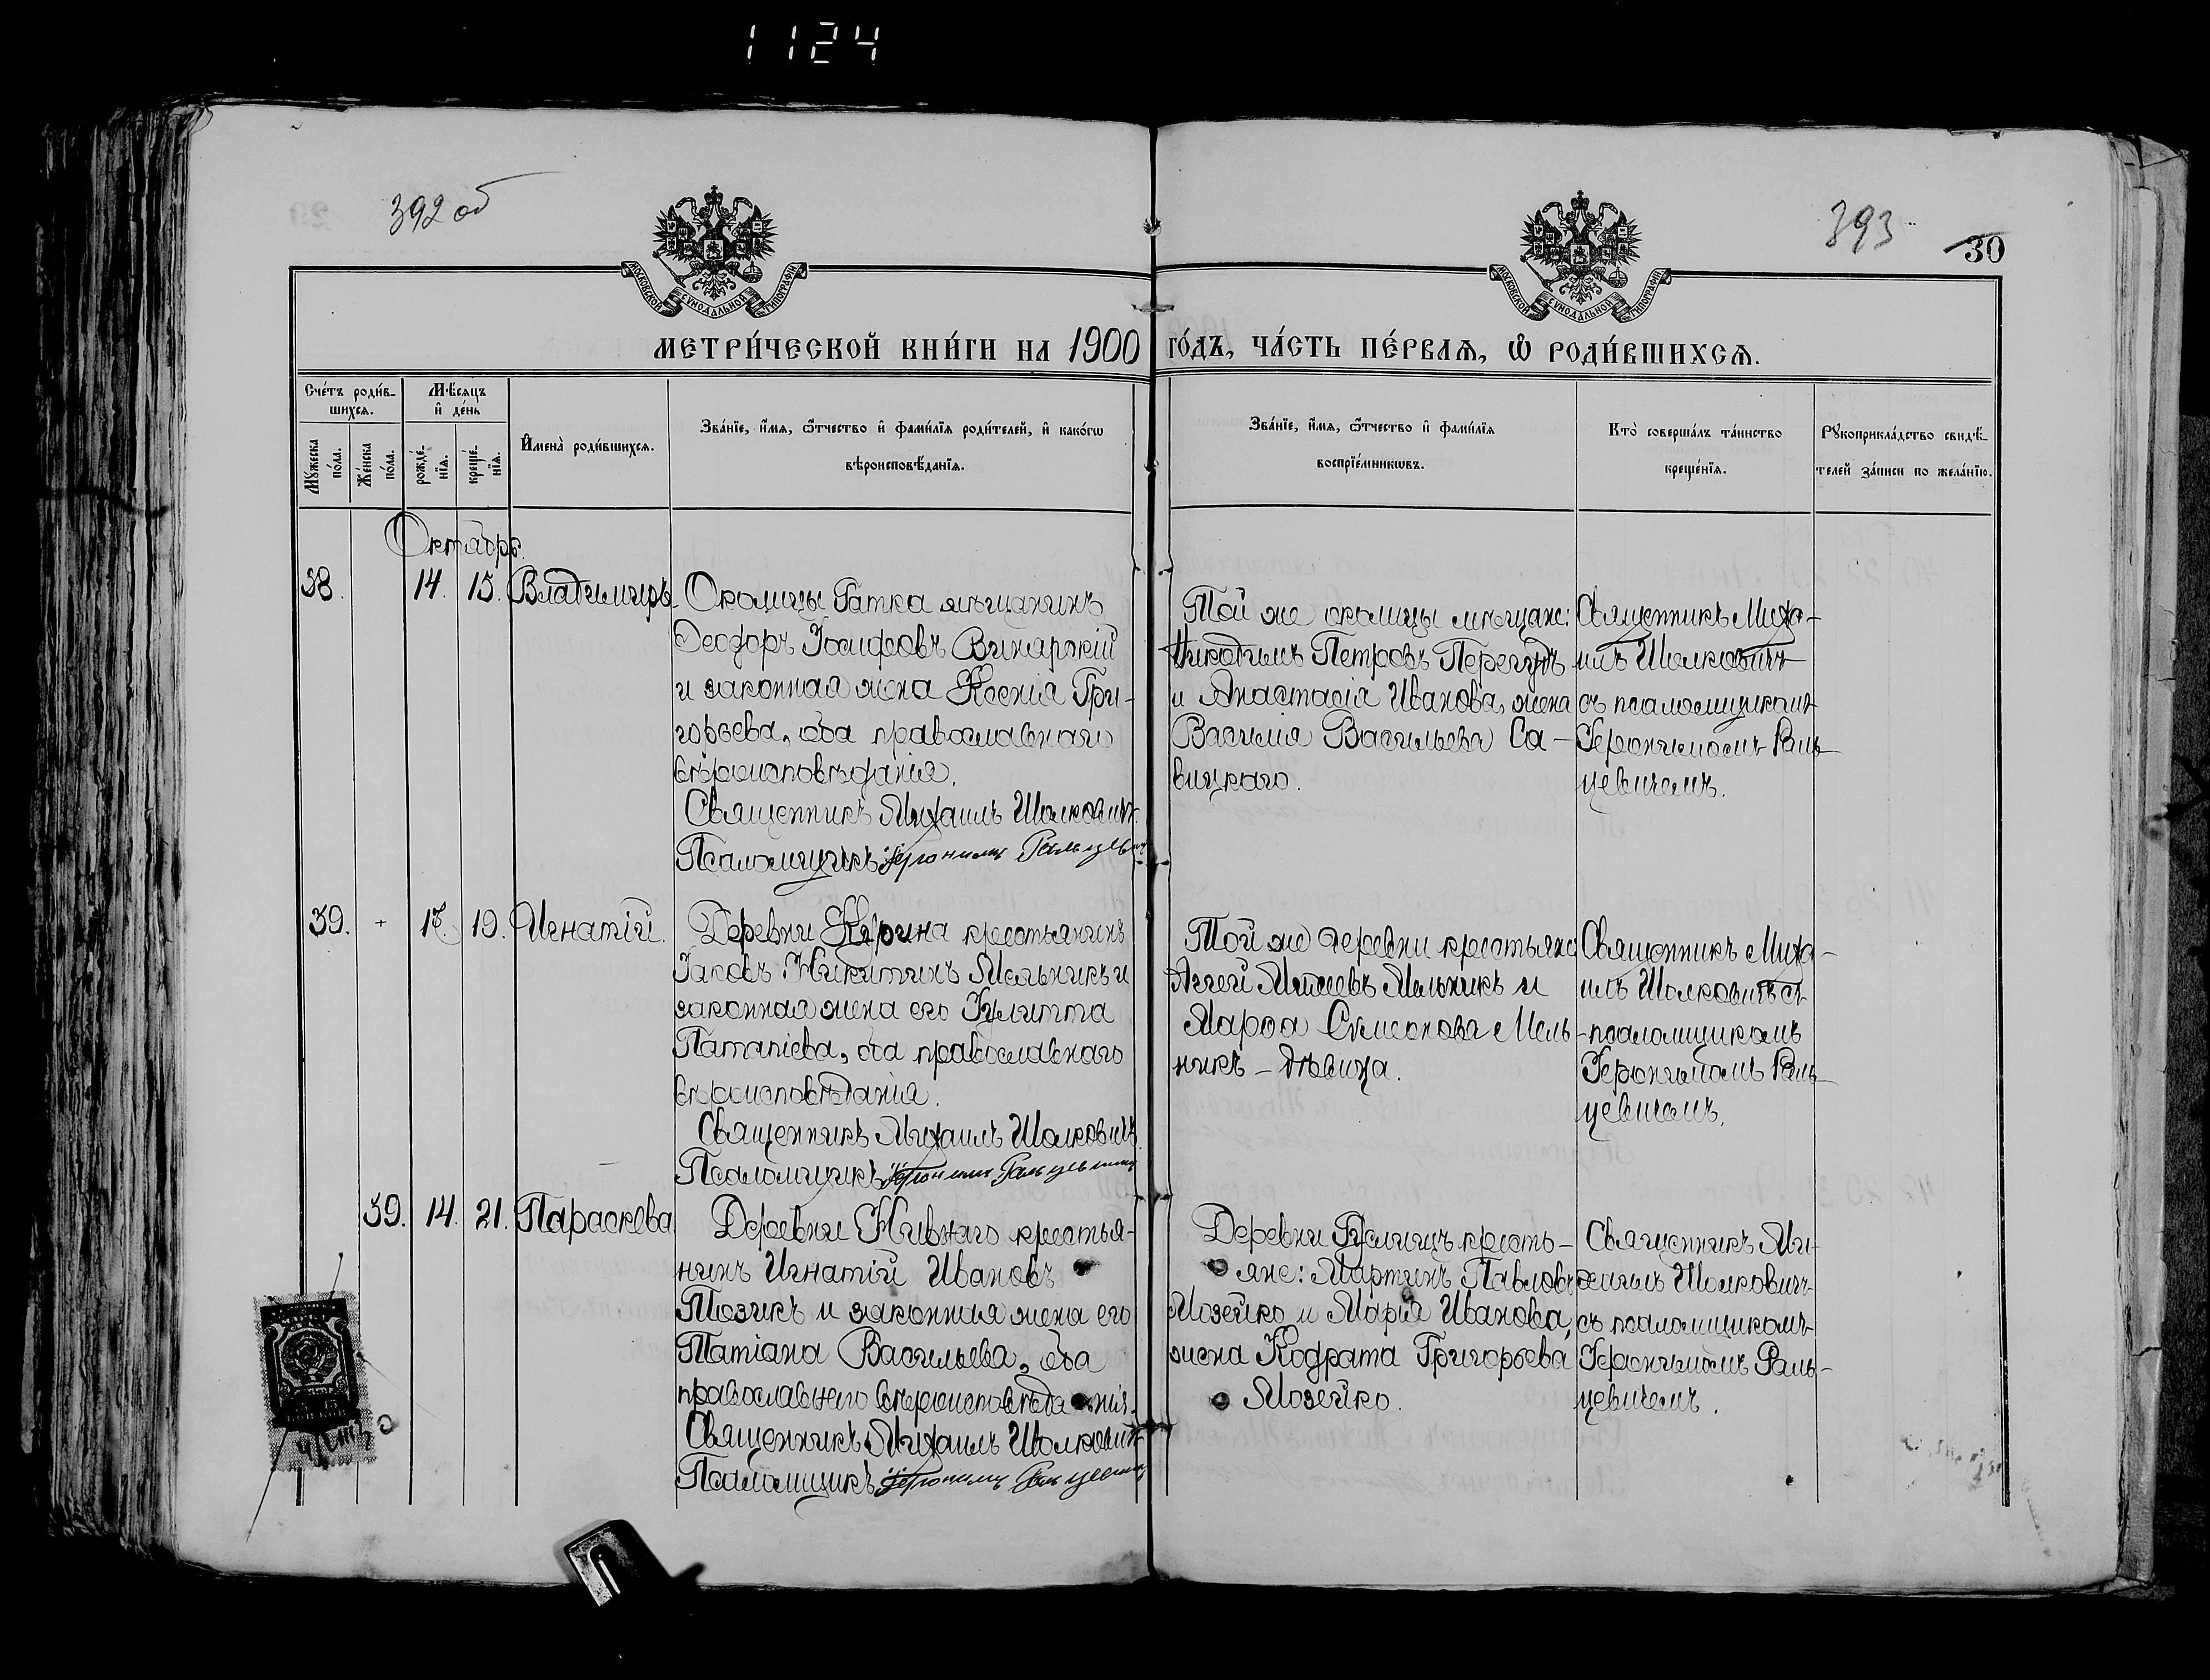 1124
392 об
393
30
МОСКОВСКОЙ СУНОДАЛЬНОЙ ТИПОГРАФІИ
МОСКОВСКОЙ СУНОДАЛЬНОЙ ТИПОГРАФІИ
МЕТРИ́ЧЕСКОЙ КНИ́ГИ НА 1900 ГО́ДЪ, ЧА́СТЬ ПЕ́РВАѦ, Ѽ РОДИ́ВШИХСѦ.
Сче́тъ роди́в-
шихсѧ.
Мꙋ́жеска
по́ла.
Же́нска
по́ла.
Мѣ́сѧцъ
и҆ де́нь
рожде́-
нїѧ.
креще́-
нїѧ.
И҆мена̀ роди́вшихсѧ.
Зва́нїе, и҆́мѧ, ѻ҆́тчество и҆ фами́лїѧ роди́телей, и҆ како́гѡ
вѣроисповѣ́данїѧ.
Зва́нїе, и҆́мѧ, ѻ҆́тчество и҆ фами́лїѧ
воспрїе́мникѡвъ.
Кто̀ соверша́лъ та́инство
креще́нїѧ.
Рꙋкоприкла́дство свидѣ́-
телей за́писи по жела́нїю.
Октябрь.
38. 14. 15. Владимиръ
Околицы Гатка мѣщанинъ
Ѳеодоръ Іосифовъ Винарскій
и законная жена Ксенія Гри-
горьева, оба православнаго
вѣроисповѣданія.
Священникъ Михаилъ Шолковичъ
Псаломщикъ Іеронимъ Гальцевич
Той же околицы мѣщане:
Никодимъ Петровъ Перегудъ
и Анастасія Иванова, жена
Василія Васильева Са-
вицкаго.
Священникъ Миха-
илъ Шолковичъ
съ псаломщикомъ
Іеронимомъ Галь-
цевичемъ.
39. + 17. 19. Игнатій.
Деревни крестьянинъ
Іаковъ Никитинъ Мельникъ и
законная жена его Іулитта
Патапіева, оба православнаго
вѣроисповѣданія.
Священникъ Михаилъ Шолковичъ
Псаломщикъ Іеронимъ Гальцевичъ
Той же деревни крестьяне
Аггей Мельникъ и
Марѳа Симеонова Мель-
никъ - дѣвица.
Священникъ Миха-
илъ Шолковичъ съ
псаломщикомъ
Іеронимомъ Галь-
цевичемъ.
39. 14. 21. Параскева
Деревни крестья-
нинъ Игнатій Ивановъ
Тозикъ и законная жена его
Татіана Васильева, оба
православнаго вѣроисповѣданія.
Священникъ Михаилъ Шолковичъ
Псаломщикъ Іеронимъ Гальцевичъ
Деревни кресть-
яне: Мартинъ Павловъ
Мозейко и Марія Иванова,
жена Кодрата Григорьева
Мозейко.
Священникъ Ми-
хаилъ Шолковичъ
съ псаломщикомъ
Іеронимомъ Галь-
цевичемъ.